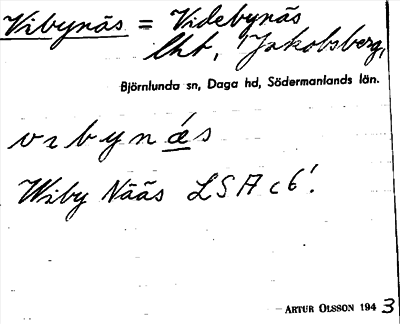 Vibynäs = Videbynäs
lht, Jakobsberg,
Björnlunda sn, Daga hd, Södermanlands län.
vibynǽs
Wiby Nääs LSA c6!
ARTUR OLSSON 1943